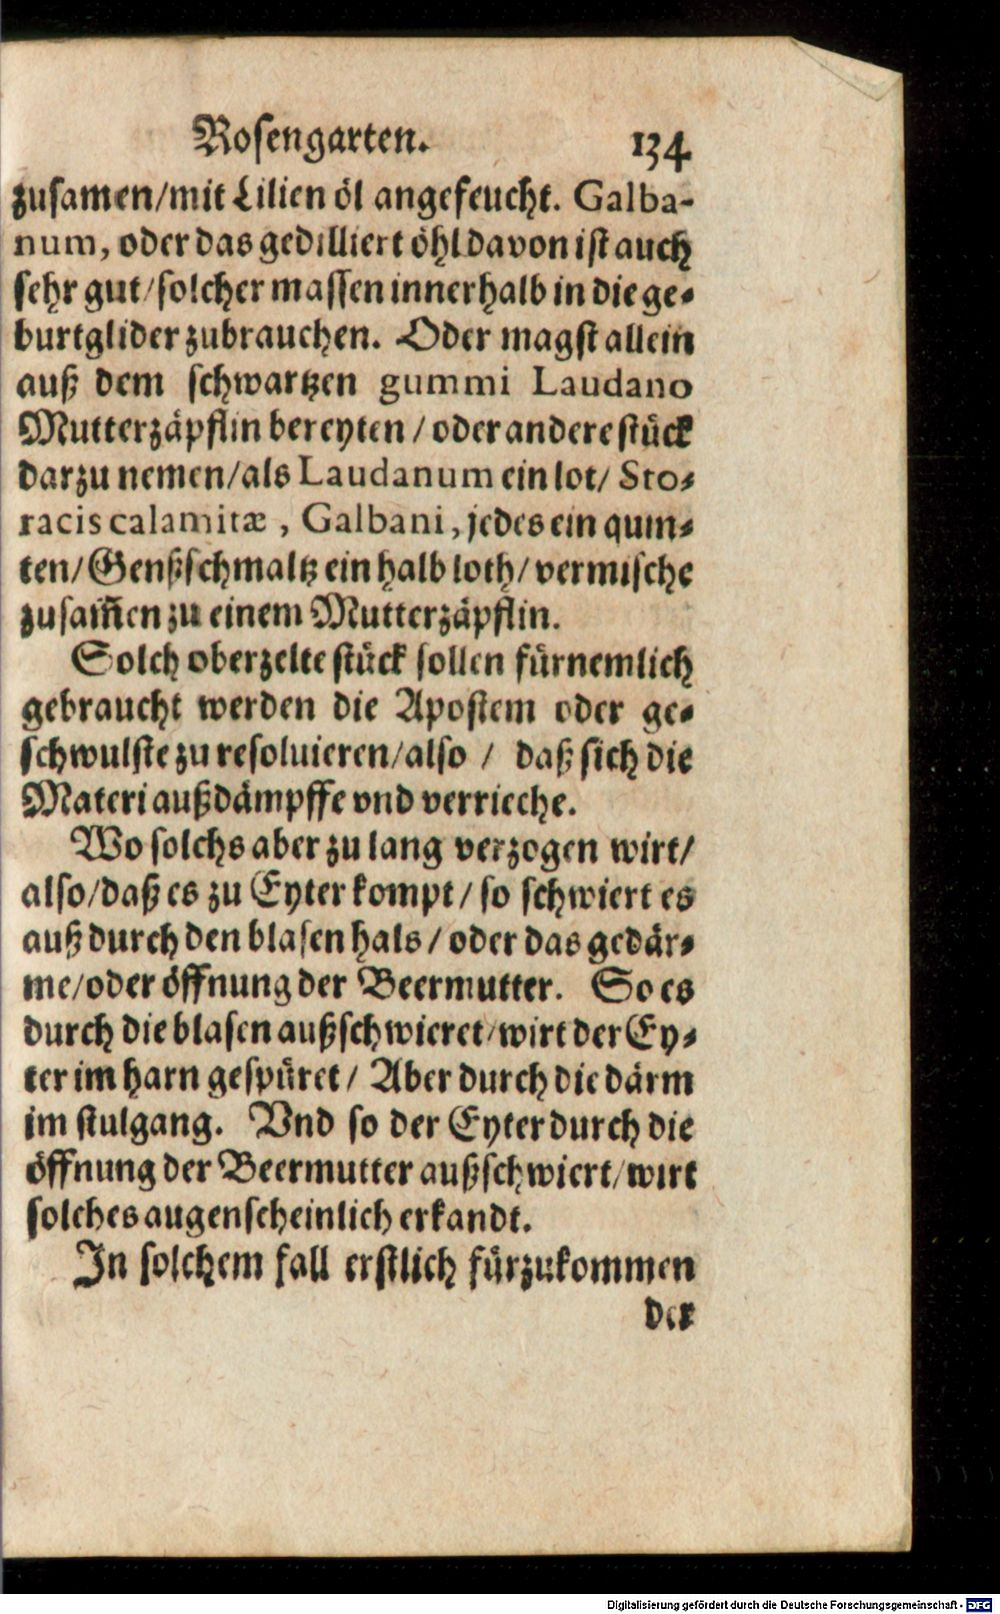 Rosengarten. 134
zusamen/mit Lilien öl angefeucht. Galba-
num, oder das gedilliert öhl davon ist auch
sehr gut/solcher massen innerhalb in die ge-
burtglider zubrauchen. Oder magst allein
auß dem schwartzen gummi Laudano
Mutterzäpflin bereyten / oder andere stück
darzu nemen/als Laudanum ein lot/ Sto-
racis calamitæ, Galbani, jedes ein quin-
ten/Genßschmaltz ein halb loth/vermische
zusam̃en zu einem Mutterzäpflin.
Solch oberzelte stück sollen fürnemlich
gebraucht werden die Apostem oder ge-
schwulste zu resoluieren/also / daß sich die
Materi außdämpffe vnd verrieche.
Wo solchs aber zu lang verzogen wirt/
also/daß es zu Eyter kompt/ so schwiert es
auß durch den blasen hals / oder das gedär-
me/oder öffnung der Beermutter. So es
durch die blasen außschwieret/wirt der Ey-
ter im harn gespüret / Aber durch die därm
im stulgang. Vnd so der Eyter durch die
öffnung der Beermutter außschwiert/wirt
solches augenscheinlich erkandt.
In solchem fall erstlich fürzukommen
der
Digitalisierung gefördert durch die Deutsche Forschungsgemeinschaft - DFG